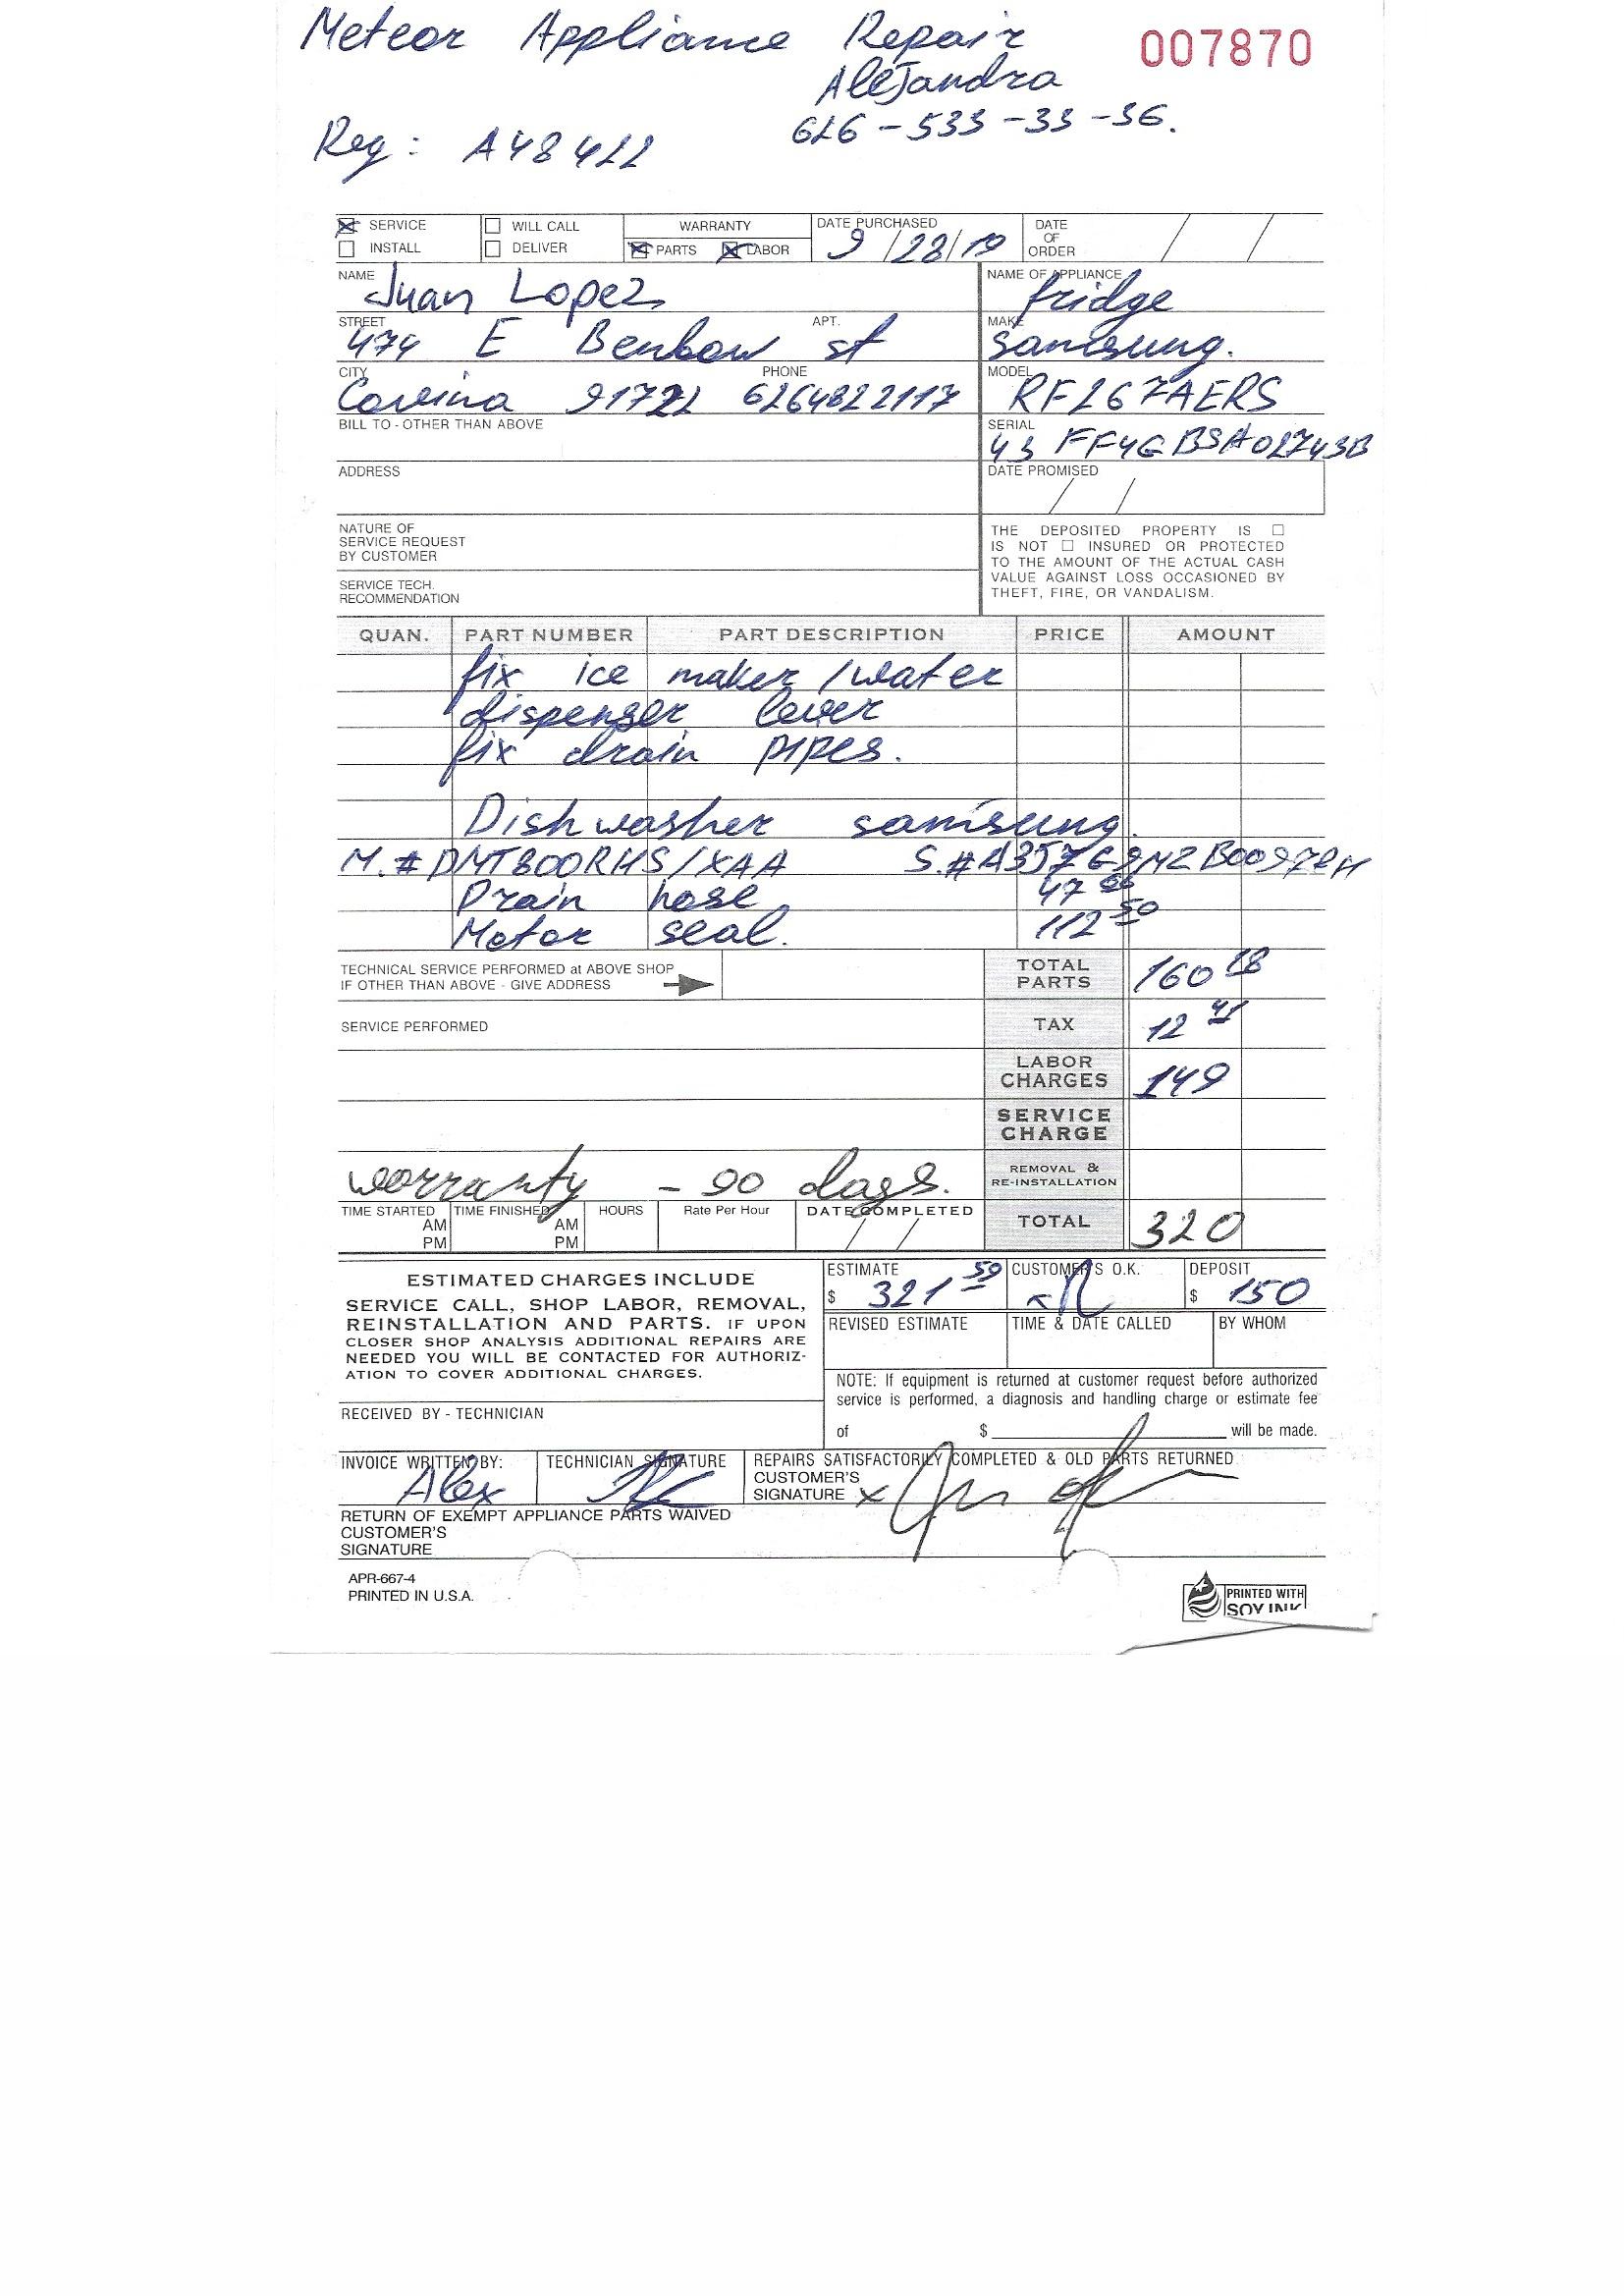 Meteor Appliance Repair 007870
Alejandra
626-533-33-36.
Reg: A48422
SERVICE WILL CALL WARRANTY DATE PURCHASED DATE OF ORDER
INSTALL DELIVER PARTS LABOR 9/28/19
NAME Juan Lopez NAME OF APPLIANCE fridge
STREET 474 E Benbow st APT. MAKE samsung.
CITY Covina 91722 PHONE 6264822117 MODEL RF267AERS
BILL TO - OTHER THAN ABOVE SERIAL
ADDRESS DATE PROMISED
NATURE OF
SERVICE REQUEST
BY CUSTOMER
SERVICE TECH.
RECOMMENDATION
THE DEPOSITED PROPERTY IS ☐
IS NOT ☐ INSURED OR PROTECTED
TO THE AMOUNT OF THE ACTUAL CASH
VALUE AGAINST LOSS OCCASIONED BY
THEFT, FIRE, OR VANDALISM.
QUAN. PART NUMBER PART DESCRIPTION PRICE AMOUNT
fix ice maker/water
dispenser lever
fix drain pipes.
Dishwasher samsung.
M.#DMT800RHS/XAA S.#
Drain hose 47
Motor seal. 112 50
TECHNICAL SERVICE PERFORMED at ABOVE SHOP
IF OTHER THAN ABOVE - GIVE ADDRESS
TOTAL PARTS 160 28
SERVICE PERFORMED TAX 12 41
LABOR CHARGES 149
SERVICE CHARGE
warranty - 90 days. REMOVAL & RE-INSTALLATION
TIME STARTED AM PM TIME FINISHED AM PM HOURS Rate Per Hour DATE COMPLETED TOTAL 320
ESTIMATED CHARGES INCLUDE
SERVICE CALL, SHOP LABOR, REMOVAL,
REINSTALLATION AND PARTS. IF UPON
CLOSER SHOP ANALYSIS ADDITIONAL REPAIRS ARE
NEEDED YOU WILL BE CONTACTED FOR AUTHORIZ-
ATION TO COVER ADDITIONAL CHARGES.
ESTIMATE $ 321 50 CUSTOMER'S O.K. DEPOSIT $ 150
REVISED ESTIMATE TIME & DATE CALLED BY WHOM
NOTE: If equipment is returned at customer request before authorized
service is performed, a diagnosis and handling charge or estimate fee
of $ will be made.
RECEIVED BY - TECHNICIAN
INVOICE WRITTEN BY: Alex TECHNICIAN SIGNATURE REPAIRS SATISFACTORILY COMPLETED & OLD PARTS RETURNED
CUSTOMER'S
SIGNATURE X
RETURN OF EXEMPT APPLIANCE PARTS WAIVED
CUSTOMER'S
SIGNATURE
APR-667-4
PRINTED IN U.S.A.
PRINTED WITH
SOY INK